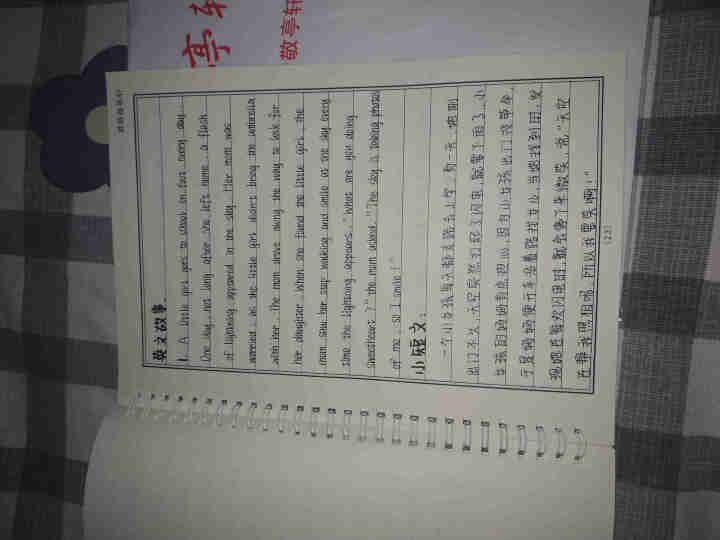 英文故事
1. A little girl gets to school on foot every day.
One day, not long after she left home, a flash
of lightning appeared in the sky. Her mom was
worried, as the little girl didn't bring the umbrella
with her. The mom drove along the way to look for
her daughter. When she found the little girl, the
mom saw her stop walking and smile at the sky every
time the lightning appears. "What are you doing
sweetheart?" the mom asked. "The sky is taking photos
of me, so I smile!"
小短文:
一个小女孩每天都走路去上学,有一天,她刚
出门不久,天空突然打起了闪电,就要下雨了,小
女孩的妈妈有点担心,因为小女孩出门没带伞,
于是妈妈便开车沿着路找女儿,当她找到时,发
现她在每次闪电时,就会停下来微笑,说"天空
在帮我照相呢,所以我要笑啊!"
(23)
亭轩
敬亭轩